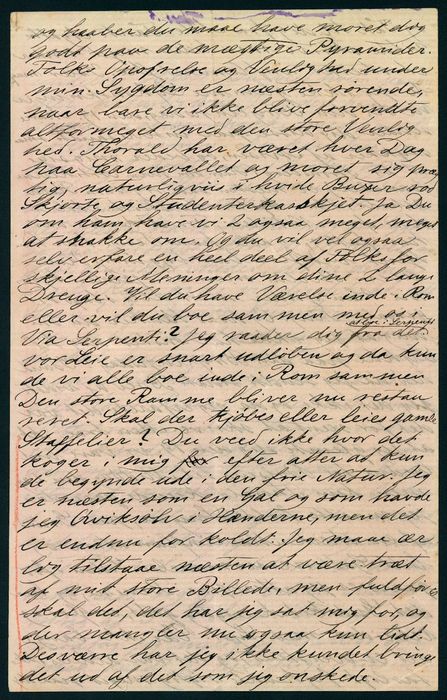 og haaber du maae have moret dig
godt paa de mægtige Pyramider.
Folks Opofrelse og Venlighed under
min Sygdom er næsten rørende,
naar bare vi ikke blive forvendte
altformeget med den store Venlig
hed. Thorald har været hver Dag
paa Carnevallet og moret sig præg
tig, naturligviis i hvide Buxer rød
Skjorte og Studenterkasskjet. Ja Du
om ham have vi 2 ogsaa meget, meget
at snakke om. Og du vil vel ogsaa
selv erfare en heel deel af Folks for
skjellige Meninger om dine 2 lange
Drenge. Vil du have Værelse inde i Rom
eller vil du boe sammen med os i
Via Serpenti? Jeg raader dig fra det
at boe i Serpenti
vor Leie er snart udløben og da kun
de vi alle boe inde i Rom sammen
Den store Ramme bliver nu restau
reret. Skal der kjøbes eller leies gamle
Staffelier? Du veed ikke hvor det
koger i mig efter atter at kun
de begynde ude i den frie Natur. Jeg
er næsten som en Gal og som havde
jeg Qviksølv i Hænderne, men det
er endnu for koldt. Jeg maae ær
lig tilstaae næsten at være træt
af mit store Billede, men fuldføres
skal det, det har jeg sat mig for, og
der mangler nu ogsaa kun lidt.
Desværre har jeg ikke kundet bringe
det ud af det som jeg ønskede.